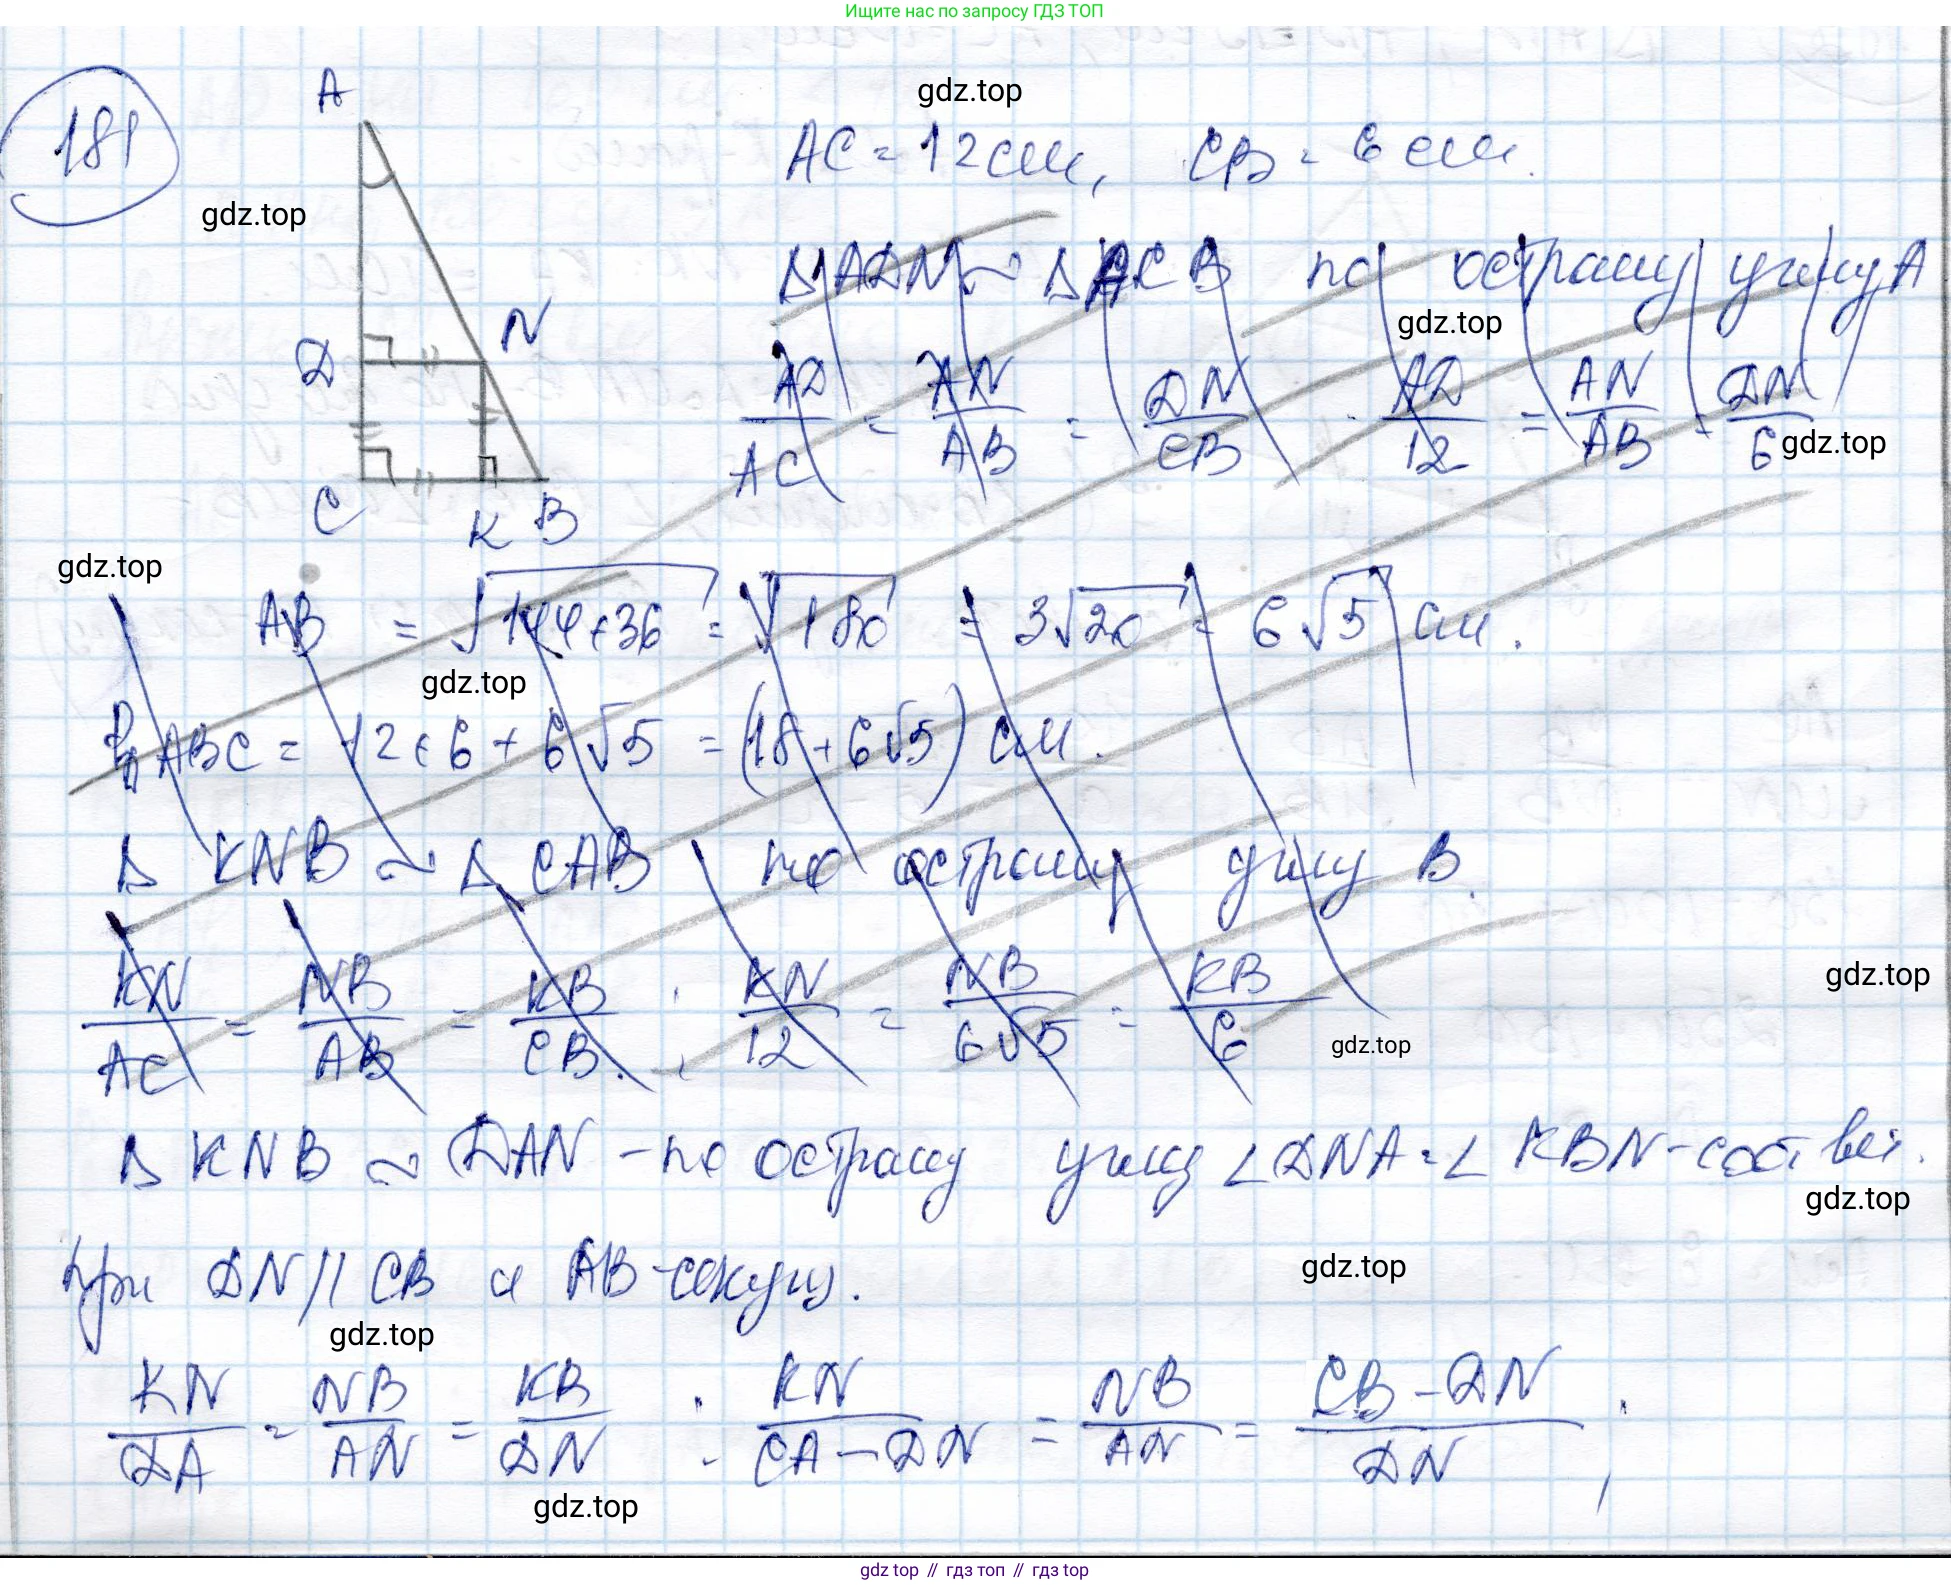 Ищите нас по запросу ГДЗ ТОП
181
A
gdz.top
AC = 12 см, CB = 6 см.
gdz.top
ΔADN ~ ΔACB по острому углу A
N
gdz.top
D
AD/AC = AN/AB = DN/CB . AD/12 = AN/AB = DN/6
gdz.top
C K B
gdz.top
AB = √144+36 = √180 = 3√20 = 6√5 см.
gdz.top
P ABC = 12+6+6√5 = (18+6√5) см.
Δ KNB ~ Δ CAB по острому углу B.
KN/AC = NB/AB = KB/CB ; KN/12 = NB/6√5 = KB/6
gdz.top
gdz.top
Δ KNB ~ DAN - по острому углу ∠DNA = ∠KBN - соответ.
gdz.top
при DN || CB и AB - секущ.
gdz.top
gdz.top
KN/DA = NB/AN = KB/DN ; KN/CA-DN = NB/AN = CB-DN/DN ;
gdz.top
gdz top // гдз топ // гдз top